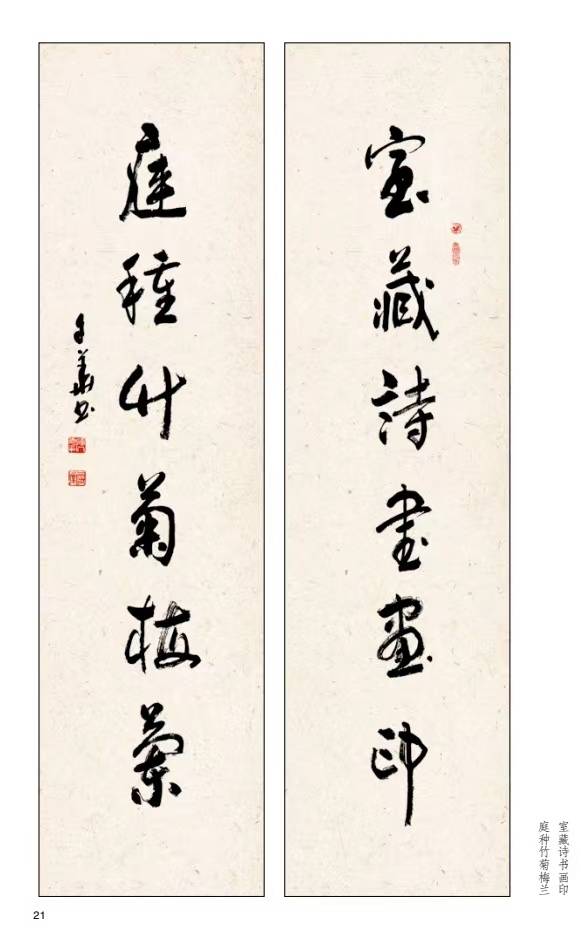 室藏詩書畫印
庭種竹菊梅蘭
室藏诗书画印
庭种竹菊梅兰
21